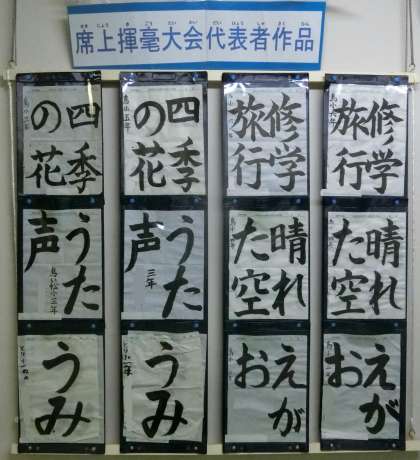 席上揮毫大会代表者作品
修学
旅行
晴れ
た空
えが
お
修学
旅行
晴れ
た空
えが
お
四季
の花
うた
声
三年
うみ
四季
の花
うた
声
うみ